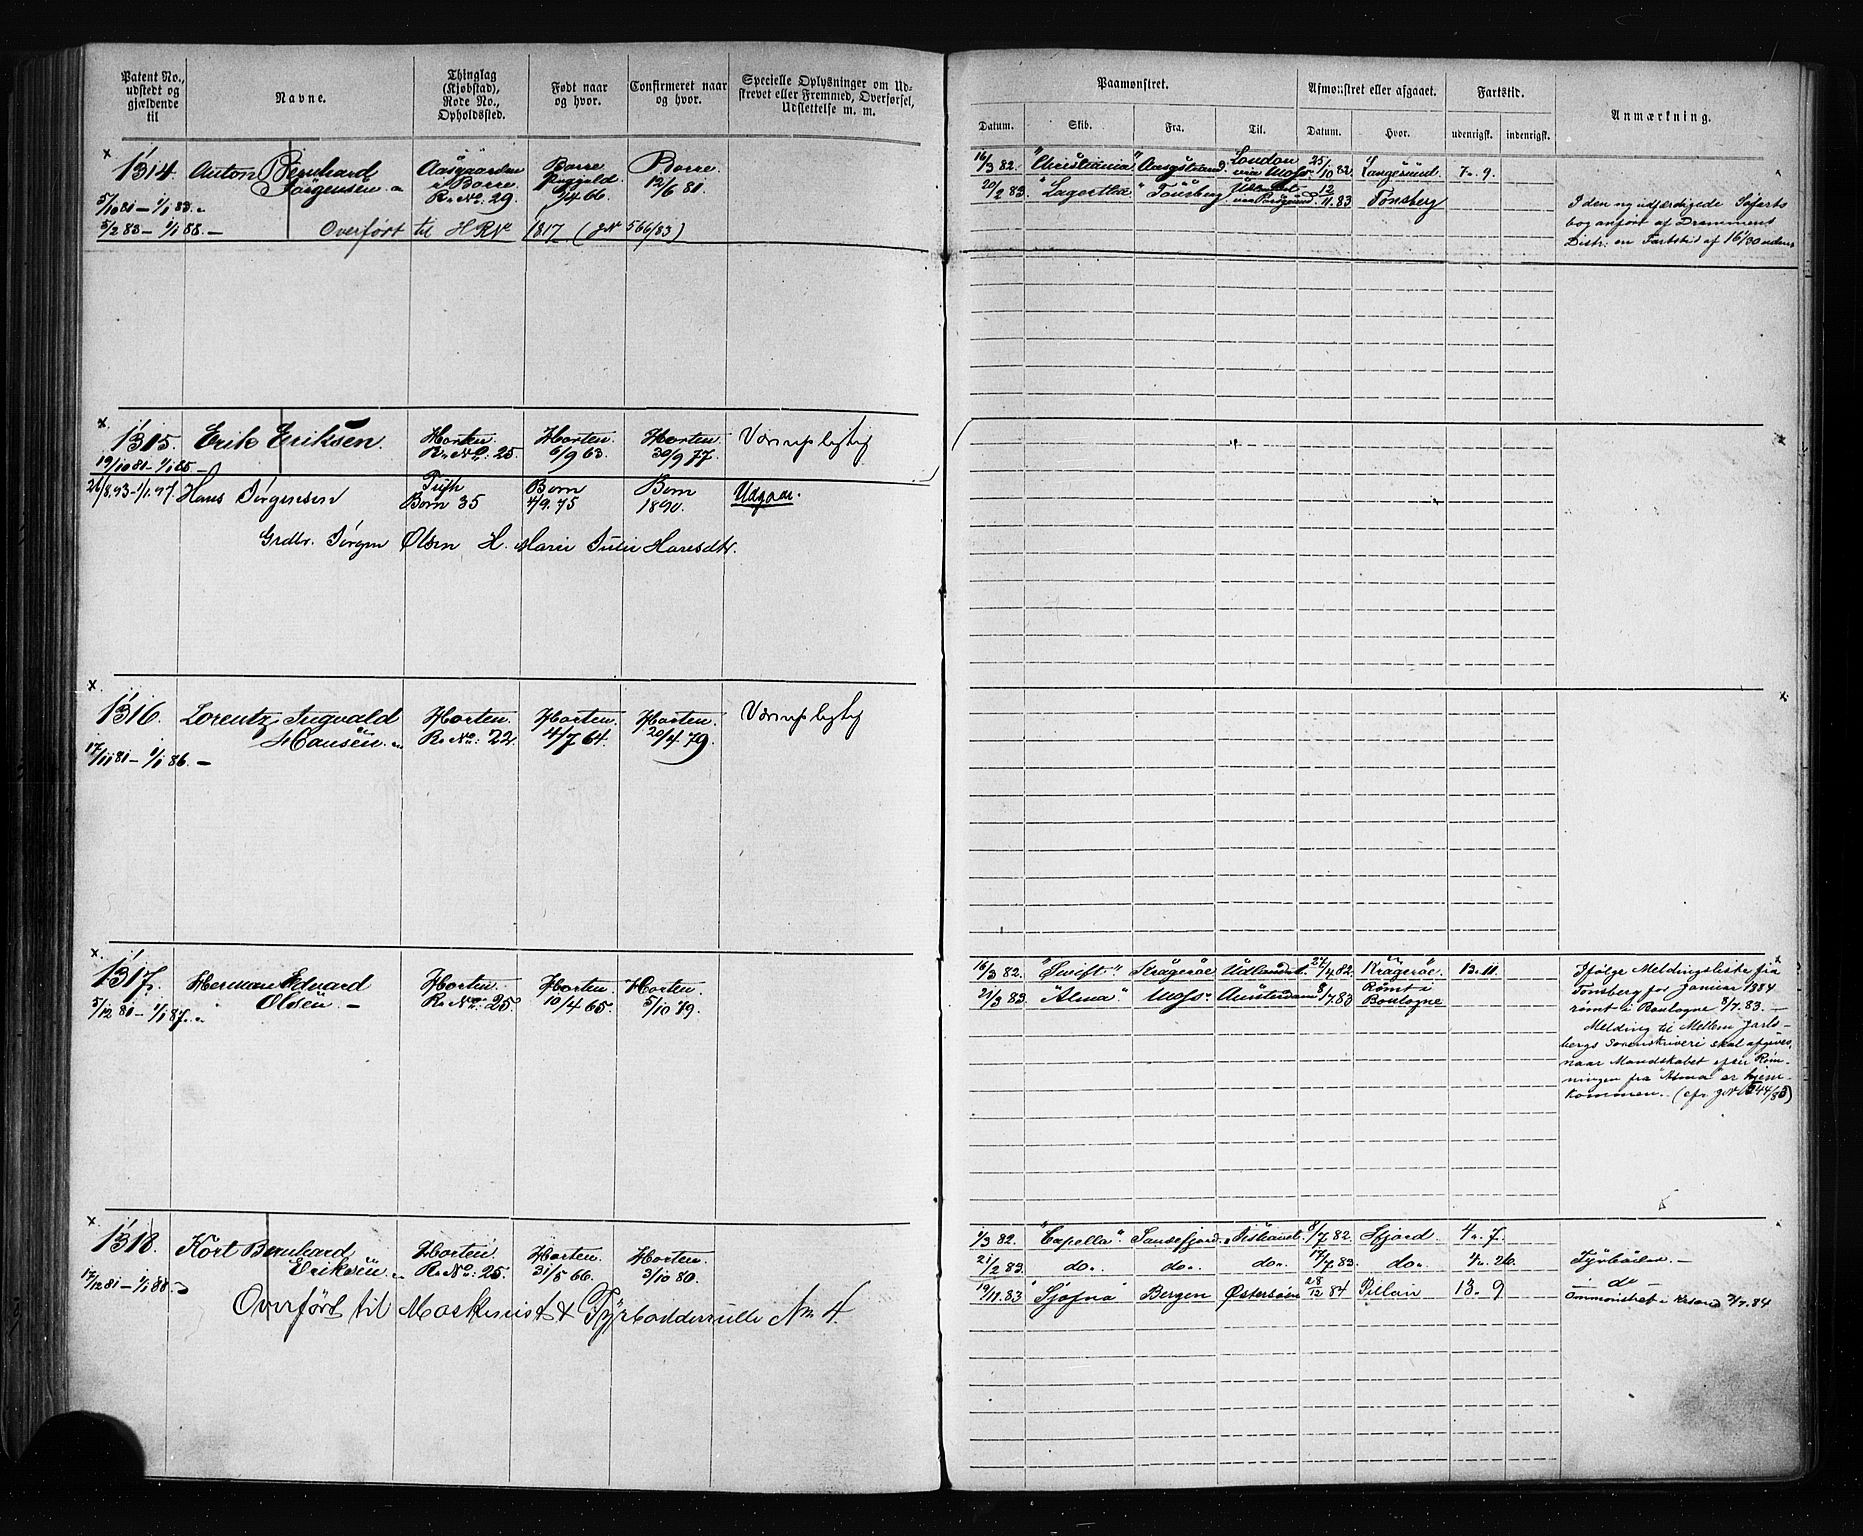 Patent No., udstedt og gjældende til
Navne.
Thinglag (Kjøbstad), Rode No., Opholdssted.
Født naar og hvor.
Confirmeret naar og hvor.
Specielle Oplysninger om Udskrevet eller Fremmed, Overførsel, Udslettelse m. m.
Paamønstret.
Afmønstret eller afgaaet.
Fartstid.
Anmærkning.
Datum.
Skib.
Fra.
Til.
Datum.
Hvor.
udenrigsk.
indenrigsk.
1314. Anton Bernhard Jørgensen
Aasgaarden i Borre. R. No. 29.
Borre 9/4 66.
Borre. 12/6 81
5/10 81 – 1/1 83.
5/2 83 – 1/1 88. –
Overført til HRNr 1817 (JN 566/83)
16/3 82. "Christiania" Aasgstrand London via Moss 25/10 82 Langesund. 7. 9.
20/2 83. "Lagertha" Tønsberg 12/11.83 Tønsberg
I den ny udfærdigede Søfarts
bog anført af Drammens
Distr: en Fartstid af 16 1/30 udenr
1315. Erik Eriksen.
Horten. R. No: 25.
Horten. 6/9 63.
Horten. 30/9 77.
Værnepligtig
19/10 81 – 1/1 85 –
26/8.93–1/1.97. Hans Jørgensen
Born 35
Born 4/9.75
Born 1890.
Udgaar.
Grdbr. Jørgen Olsen H. Marie Julie Hansdtr.
1316. Lorentz Ingvald Hansen.
Horten. R. No: 22.
Horten. 4/7 64.
Horten. 20/4 79.
Værnepligtig
17/11 81 – 1/1 86. –
1317. Herman Edvard Olsen. –
Horten. R. No: 25.
Horten. 10/4 65.
Horten. 5/10 79.
5/12 81 – 1/1 87.
16/3 82. "Swift." Kragerøe Udlandet. 24/4 82. Kragerøe. 13. 11.
21/3 83. "Alma." Moss. Amsterdam 8/7 83 Rømt i Boulogne
Ifølge Meldingsliste fra
Tønsberg for Januar 1884
rømt i Boulogne 8/7.83. –
Melding til Mellem Jarls-
bergs Sorenskriveri skal afgives,
naar Mandskabet efter Røm-
ningen fra "Alma" er hjem-
kommen.
1318. Kort Bernhard Eriksen.
Horten. R. No: 25.
Horten. 31/5 66.
Horten. 3/10 80.
17/12 81 – 1/1 88.
Overført til Maskinist & Fyrbøderrulle No. 4.
1/3 82. "Capella" Sandefjord. Sishavet. 8/7 82. Sfjord. 4. 7.
21/2 83. do. do. do. 17/7 83. do. 4. 26.
19/11.83 "Sjøfna" Bergen Østersøen 28/12 84 Pillau 13. 9
Fyrbøder. –
– do –
ommønstret i Krsand 2/7.84